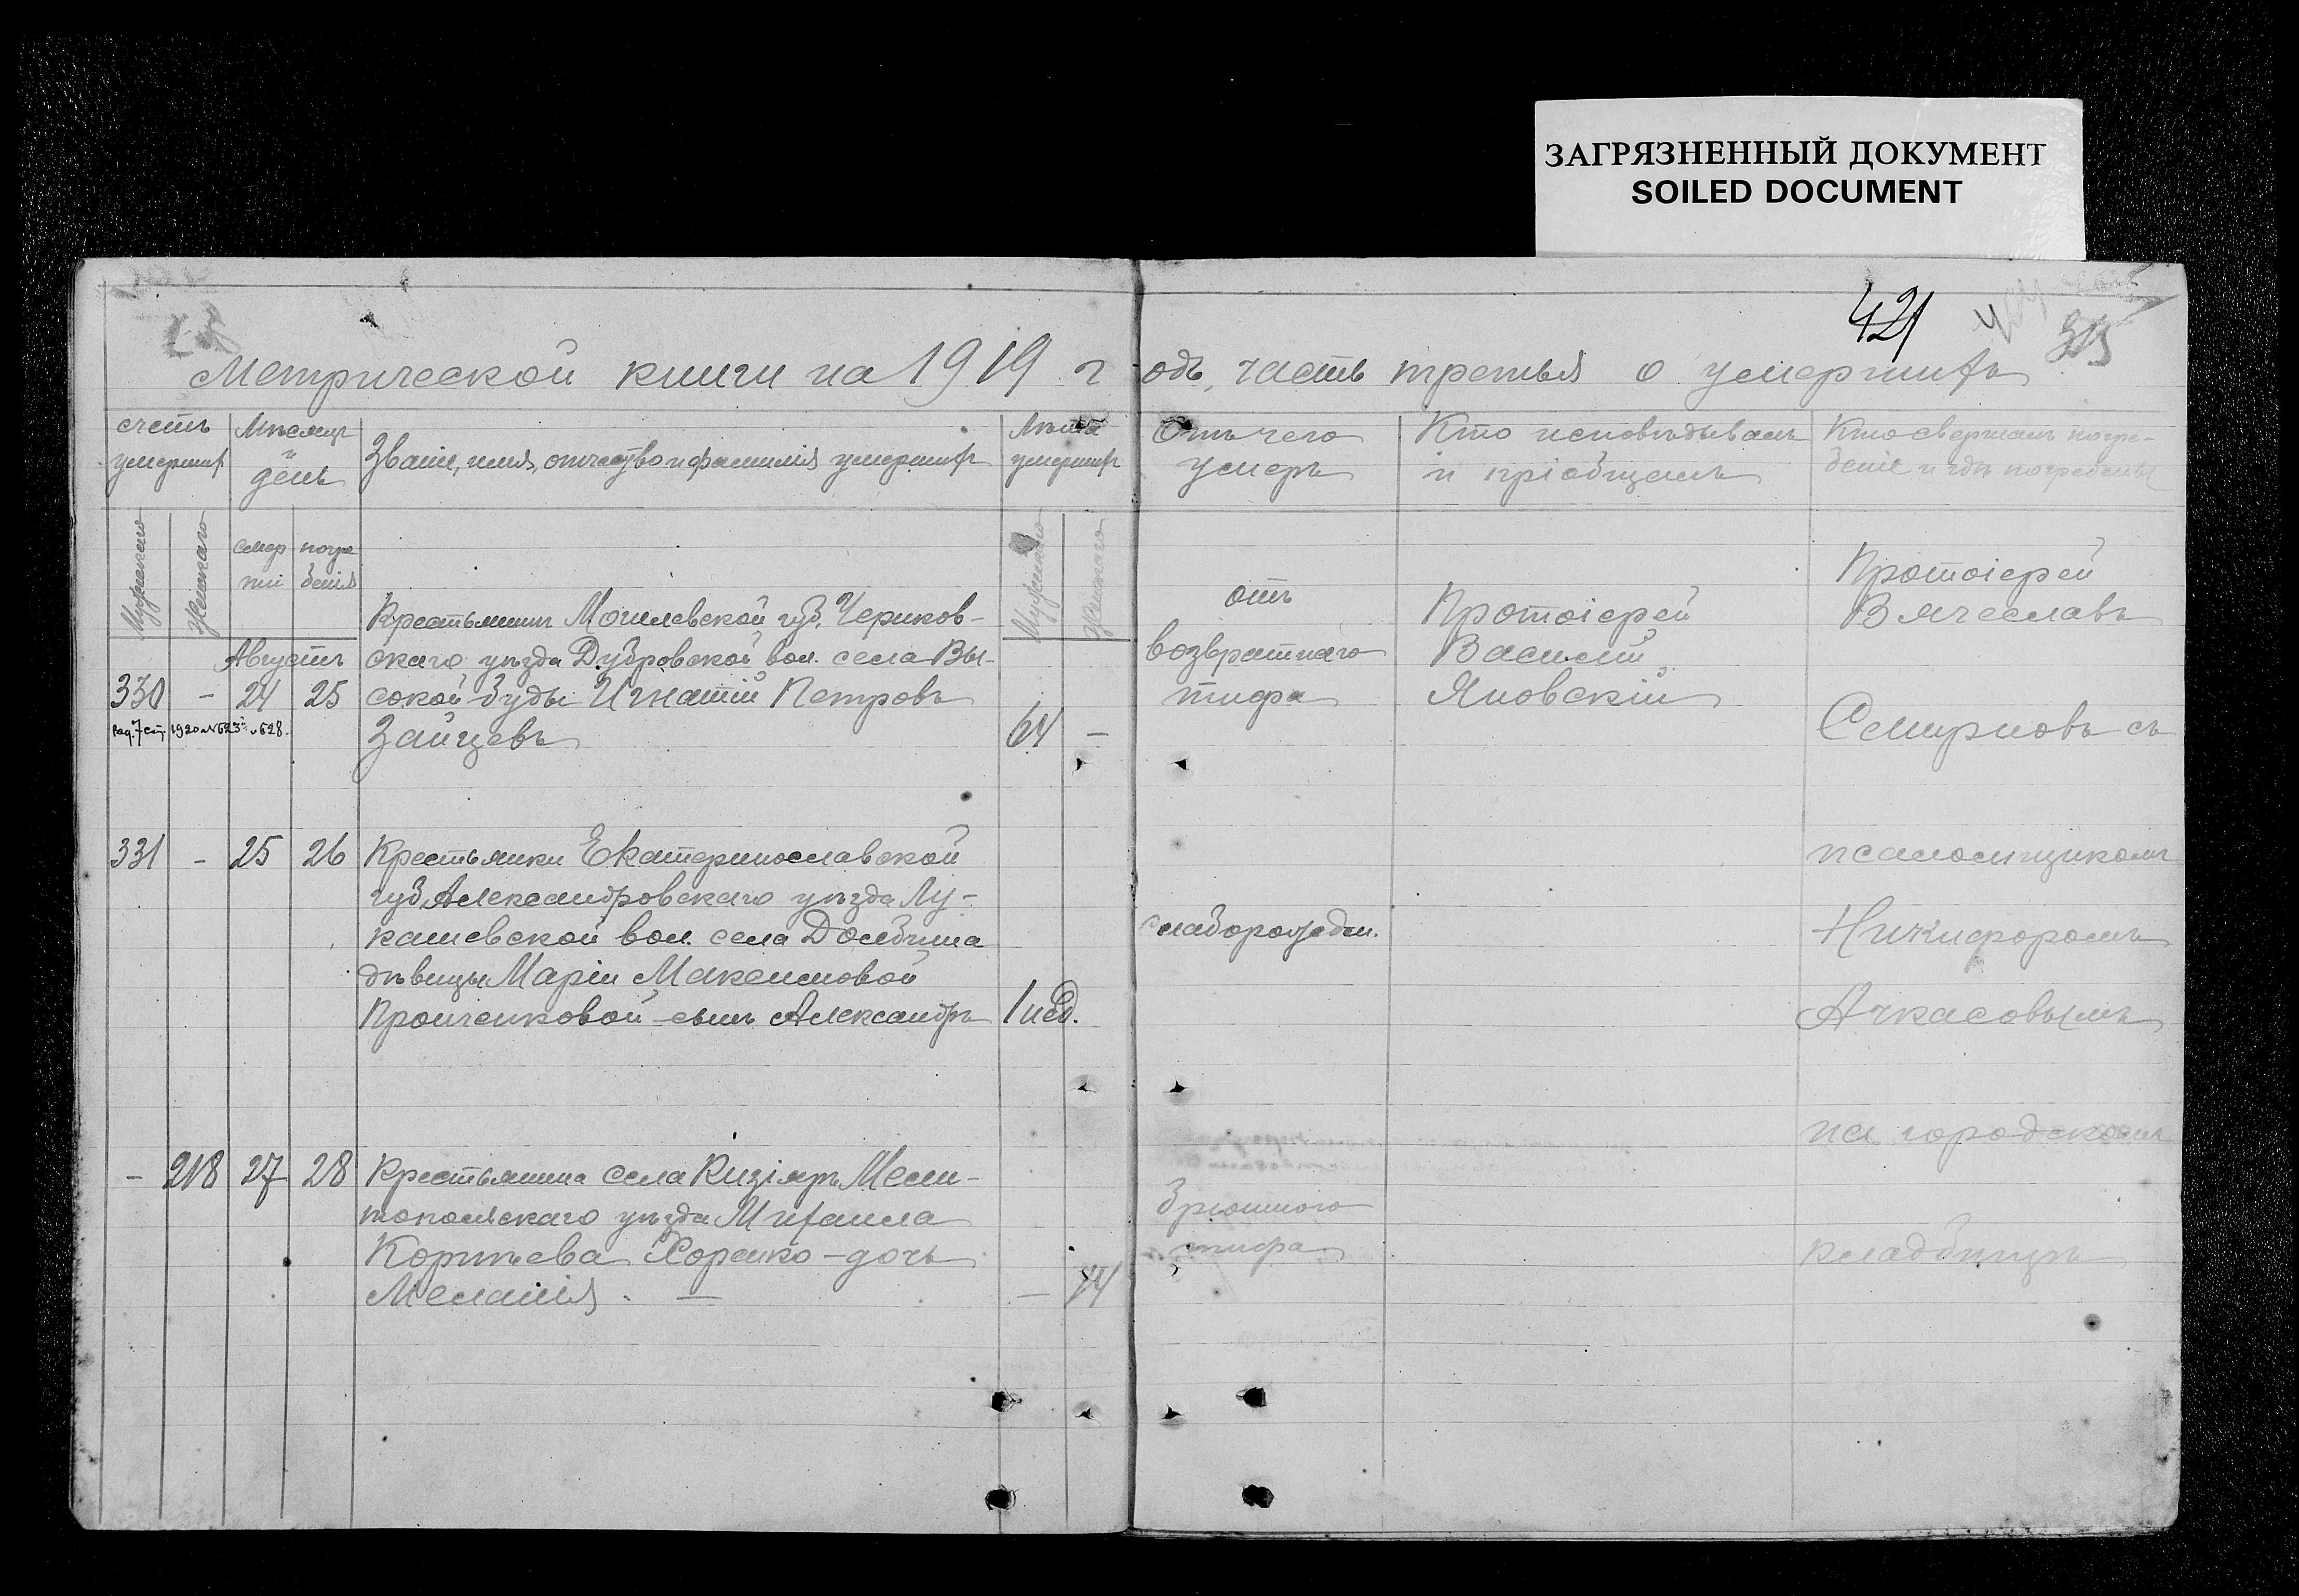 ЗАГРЯЗНЕННЫЙ ДОКУМЕНТ
SOILED DOCUMENT
421
315
Метрической книги на 1919 г
одъ, часть третья о умершихъ
счетъ умершихъ
Мужескаго
Женскаго
Мѣсяцъ и день
смерти
погребенія
Званіе, имя, отчество и фамилія умершихъ
Лѣта умершихъ
Мужескаго
Женскаго
Отъ чего умеръ
Кто исповѣдывалъ и пріобщалъ
Кто свершалъ погребеніе и гдѣ погребены
Августъ
330 – 24 25
1920 №623 и 628.
Крестьянинъ Могилевской губ. Чериков-
скаго уѣзда Дубровской вол. села Вы-
сокой буды Игнатій Петровъ
Зайцевъ
64 –
отъ
возвратнаго
тифа
Протоіерей
Василій
Яновскій
331 – 25 26
Крестьянки Екатеринославской
губ. Александровскаго уѣзда Лу-
кашевской вол. села
дѣвицы Маріи Максимовой
Проиченковой – сынъ Александръ
1 нед.
слаборожден.
– 218 27 28
Крестьянина села Кизіяръ Мели-
топольскаго уѣзда Михаила
Корнѣева Хоренко – дочь
Меланія. —
— 14
брюшного
тифа
Протоіерей
Вячеславъ
Смирновъ съ
псаломщикомъ
Никифоромъ
Ачкасовымъ
на городскомъ
кладбищѣ